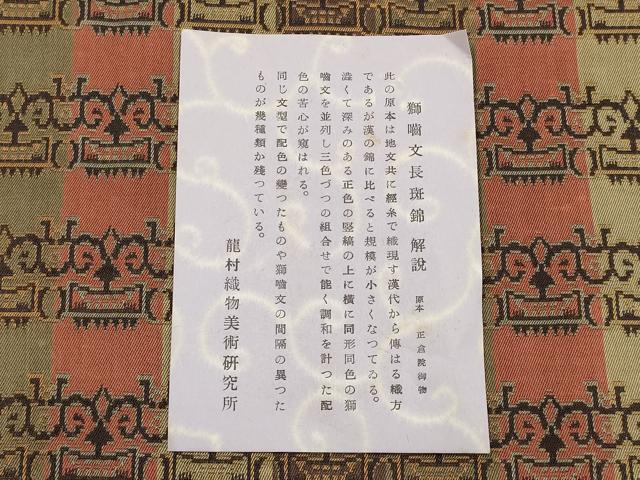 獅嚙文長斑錦 解説 原本 正倉院御物
此の原本は地文共に經糸で織現す漢代から傳はる織方
であるが漢の錦に比べると規模が小さくなつてゐる。
澁くて深みのある正色の竪縞の上に横に同形同色の獅
嚙文を並列し三色づつの組合せで能く調和を計つた配
色の苦心が窺はれる。
同じ文型で配色の變つたものや獅嚙文の間隔の異つた
ものが幾種類か殘つている。
龍村織物美術研究所